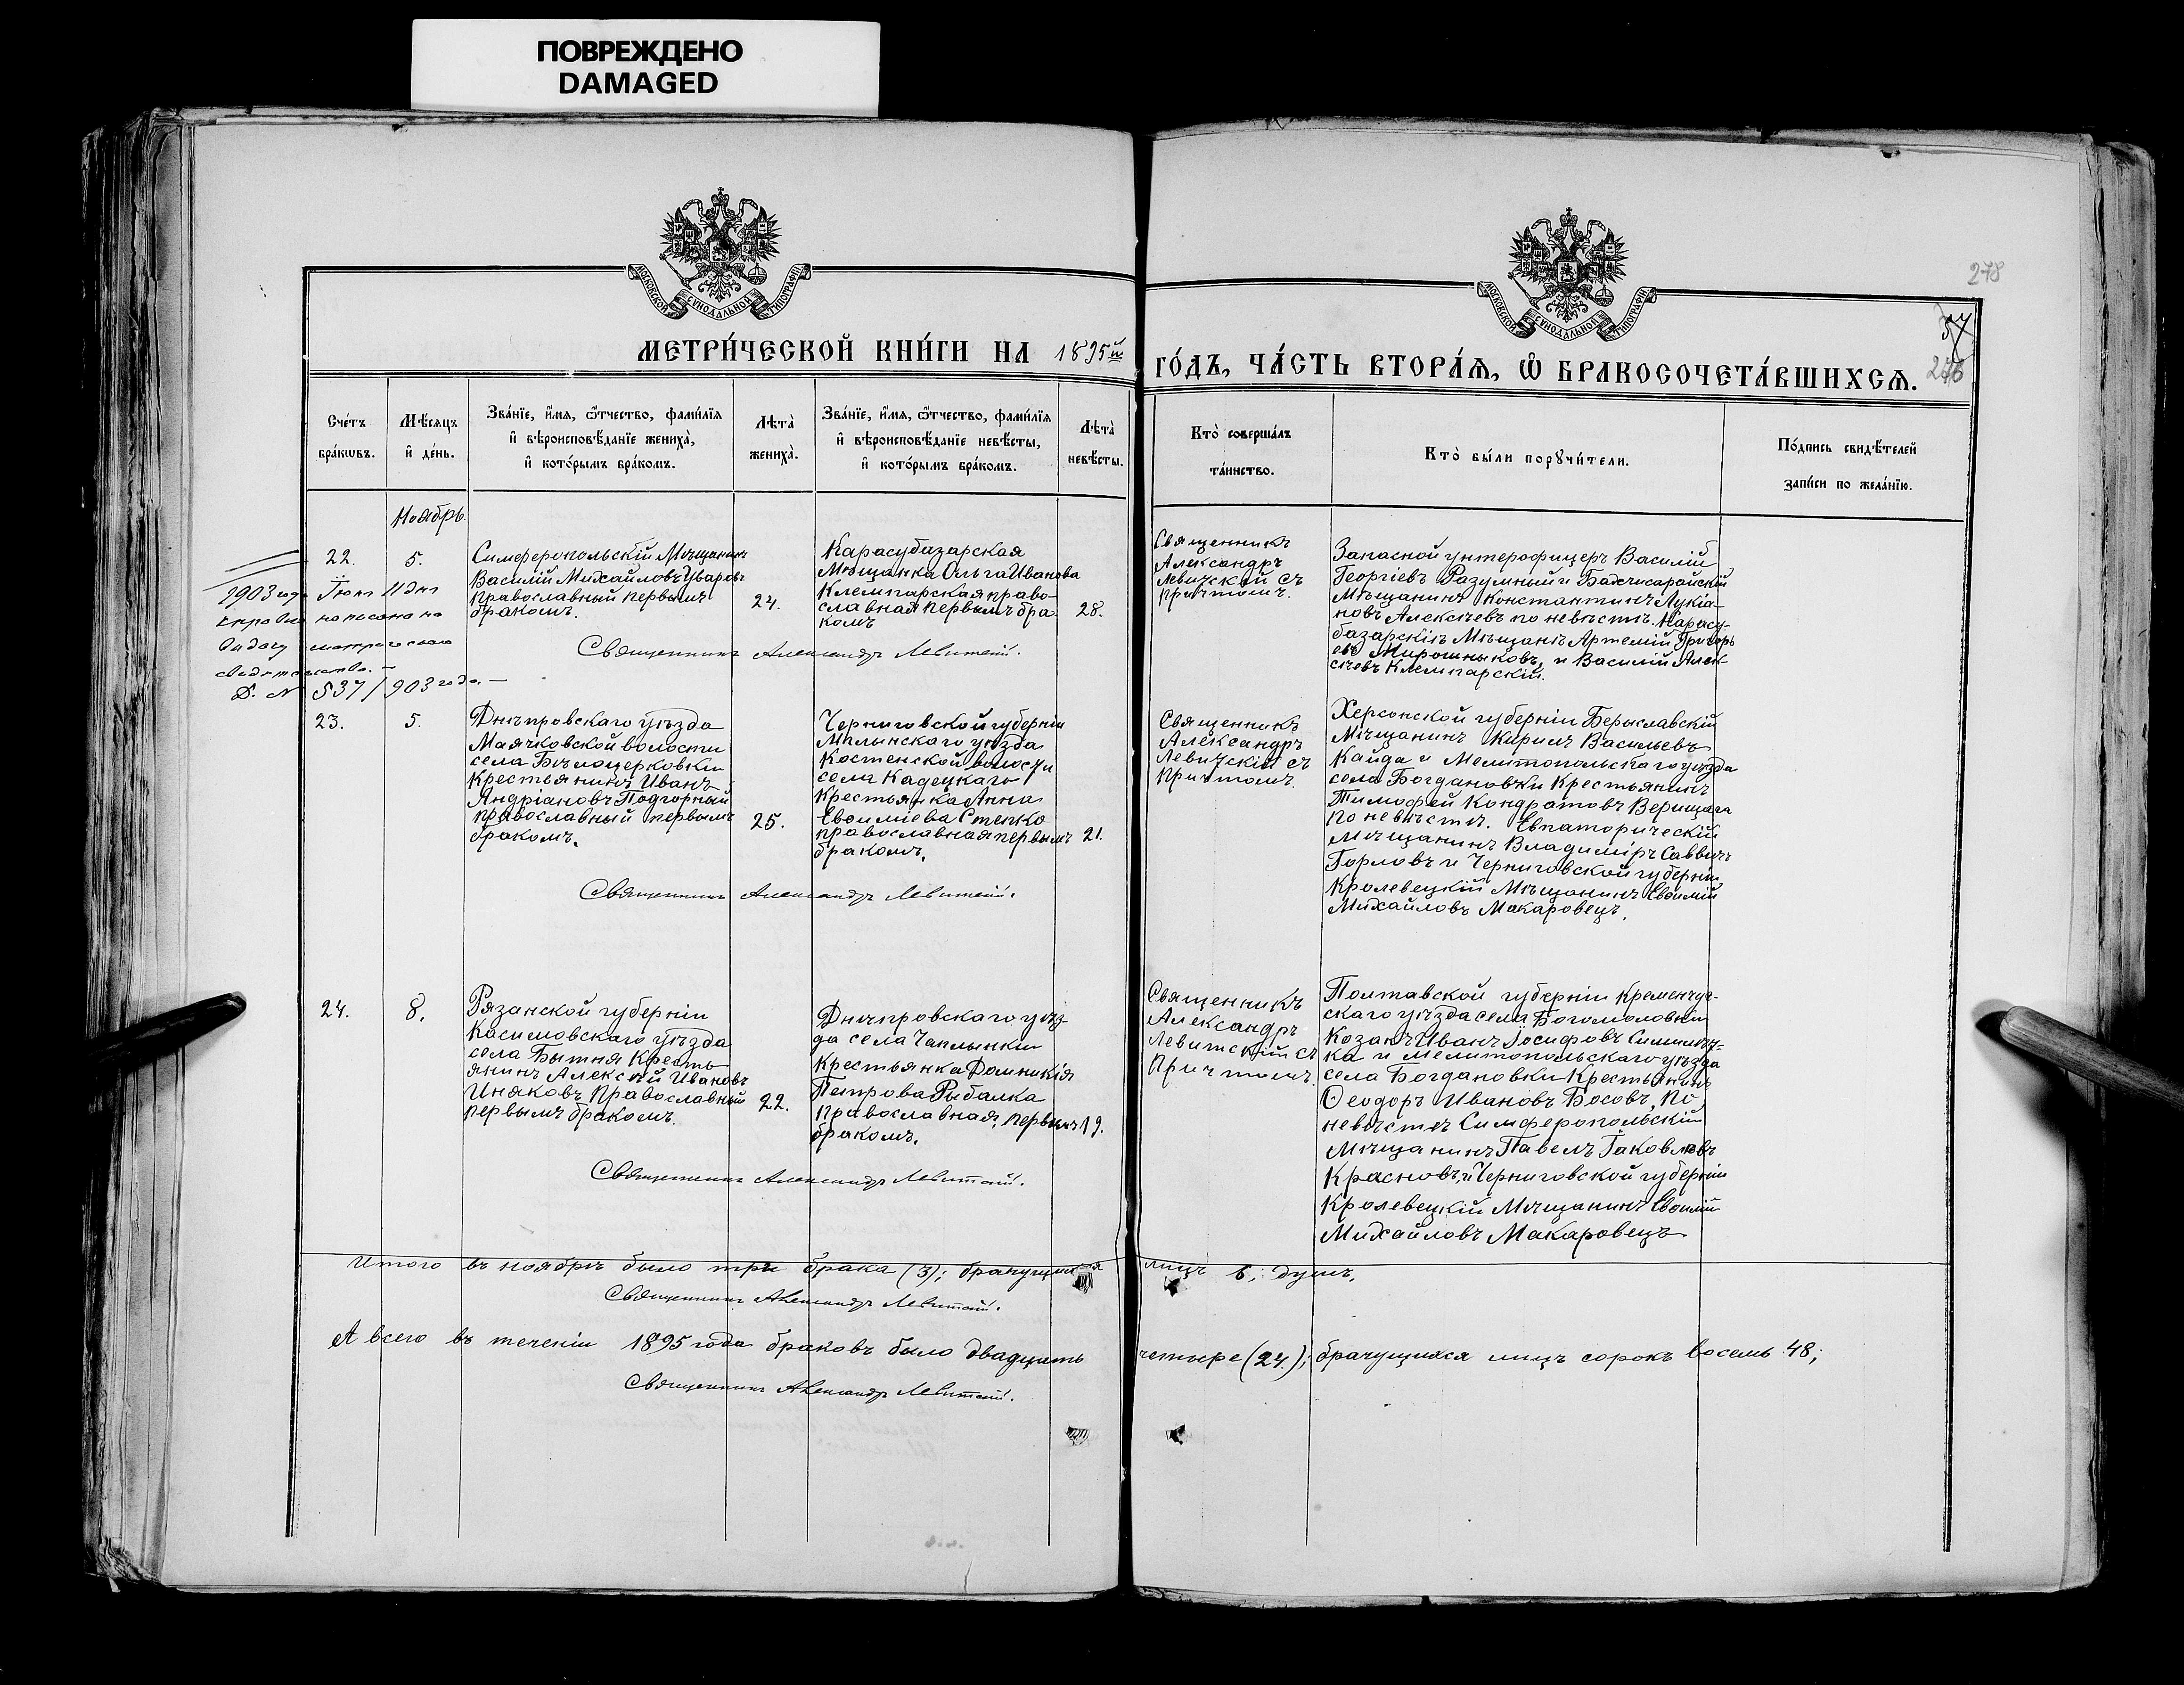 ПОВРЕЖДЕНО
DAMAGED
МОСКОВСКОЙ СѴНОДАЛЬНОЙ ТИПОГРАФІИ
МОСКОВСКОЙ СѴНОДАЛЬНОЙ ТИПОГРАФІИ
278
57
276
МЕТРИ́ЧЕСКОЙ КНИ́ГИ НА 1895й
ГО́ДЪ, ЧА́СТЬ ВТОРА́Ѧ, Ѿ БРАКОСОЧЕТА́ВШИХСѦ.
Сче́тъ
бра́кѡвъ.
Мѣ́сяцъ
и҆ де́нь.
Зва́нїе, и҆́мя, ѻ҆́тчество, фами́лїя
и҆ вѣроисповѣ́данїе жениха̀,
и҆ кото́рымъ бра́комъ.
Лѣта̀
жениха̀.
Зва́нїе, и҆́мя, ѻ҆́тчество, фами́лїя
и҆ вѣроисповѣ́данїе невѣ́сты,
и҆ кото́рымъ бра́комъ.
Лѣта̀
невѣ́сты.
Кто̀ соверша́лъ
та́инство.
Кто̀ бы́ли порꙋчи́тели.
По́дпись свидѣ́телей
за́писи по жела́нїю.
Ноябрь.
22.
5.
Симферопольскій Мѣщанинъ
Василій Михайловъ Уваровъ
православный первымъ
бракомъ.
24.
Карасубазарская
Мѣщанка Ольга Иванова
Клемпарская право-
славная первымъ бра-
комъ
28.
Священникъ
Александръ
Левитскій съ
причтомъ.
Запасной унтерофицеръ Василій
Георгіевъ Разумный и Бахчисарайскій
Мѣщанинъ Константинъ Лукіа-
новъ Алексѣевъ по невѣстѣ. Карасу-
базарскіе Мѣщане Артемій Григорь
евъ Мирошныковъ, и Василій Алек-
сѣевъ Клемпарскій.
1903 года Іюня 11 дня
справка написана на
выдачу метрическаго
свидетельства. —
Д. № 537/903 года. —
Священникъ Александръ Левитскій.
23.
5.
Днѣпровскаго уѣзда
Маячковской волости
села Бѣлоцерковки
крестьянинъ Иванъ
Андріановъ Подгорный
православный первымъ
бракомъ.
25.
Черниговской губерніи
Мглынскаго уѣзда
Костенской волости
села Кадецкаго
Крестьянка Анна
Евѳиміева Степко
православная первымъ
бракомъ.
21.
Священникъ
Александръ
Левитскій съ
Причтомъ.
Херсонской губерніи Бериславскій
Мѣщанинъ Кирилъ Васильевъ
Кайда и Мелитопольскаго уѣзда
села Богдановки Крестьянинъ
Тимофей Кондратовъ Верищага
по невѣстѣ. Евпаторическій
Мѣщанинъ Владиміръ Саввичъ
Горловъ и Черниговской губерніи
Кролевецкій Мѣщанинъ Евѳимій
Михайловъ Макаровецъ.
Священникъ Александръ Левитскій.
24.
8.
Рязанской губерніи
Касимовскаго уѣзда
села Бытня Кресть
янинъ Алексѣй Ивановъ
Иняковъ, Православный
первымъ бракомъ.
22.
Днѣпровскаго уѣз-
да села Чаплынки
Крестьянка Домникія
Петрова Рыбалка
Православная, первымъ
бракомъ.
19.
Священникъ
Александръ
Левитскій съ
Причтомъ.
Полтавской губерніи Кременчуг-
скаго уѣзда села Богомоловки
Козакъ Иванъ Іосифовъ
ка и Мелитопольскаго уѣзда
села Богдановки Крестьянинъ
Ѳеодоръ Ивановъ Босовъ, По
невѣстѣ Симферопольскій
Мѣщанинъ Павелъ Іаковлевъ
Красновъ, и Черниговской губерніи
Кролевецкій Мѣщанинъ Евѳимій
Михайловъ Макаровецъ
Священникъ Александръ Левитскій.
Итого въ ноябрѣ было три брака (3); брачущихся лицъ 6; душъ.
Священникъ Александръ Левитскій.
А всего въ теченіи 1895 года браковъ было двадцать четыре (24); брачущихся лицъ сорокъ восемь 48;
Священникъ Александръ Левитскій.